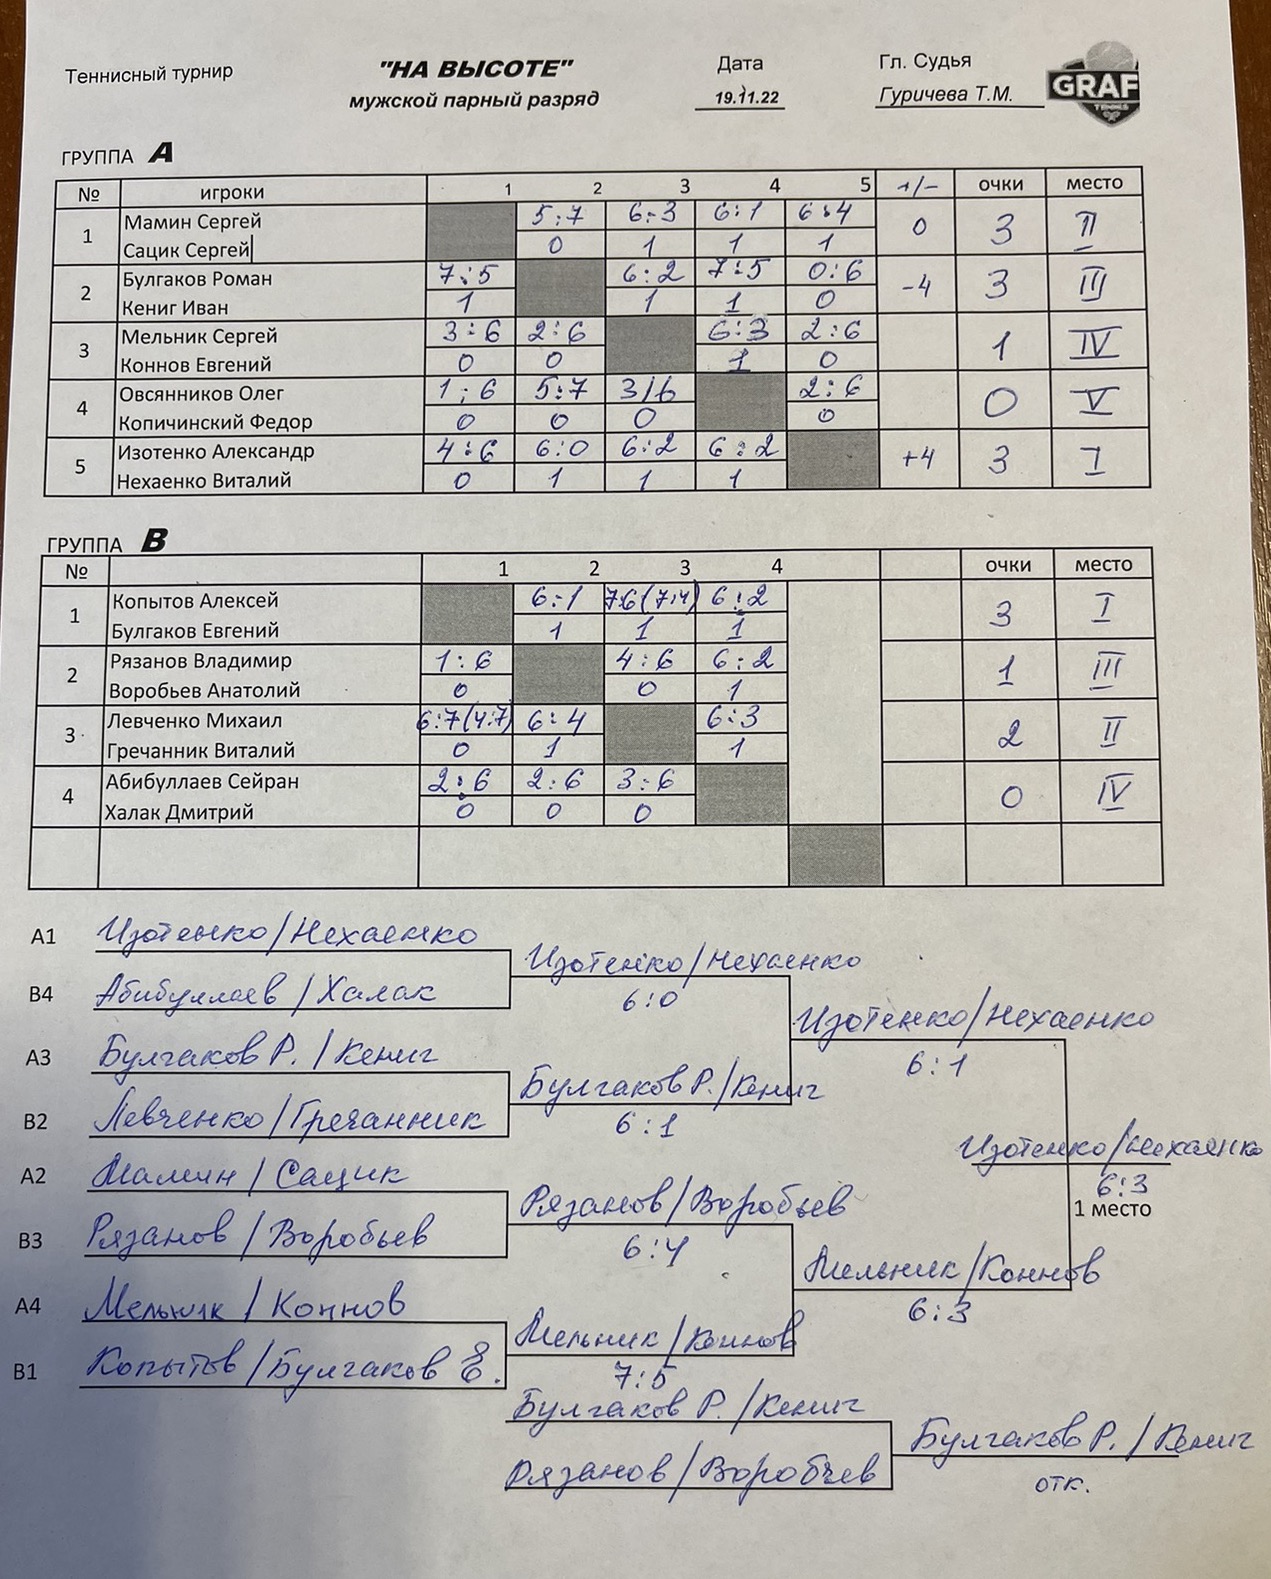 Теннисный турнир "НА ВЫСОТЕ" Дата Гл. Судья
мужской парный разряд 19.11.22 Гуричева Т.М. GRAF
TENNIS
ГРУППА А
№ игроки 1 2 3 4 5 +/- очки место
1 Мамин Сергей 5:7 6:3 6:1 6:4 0 3 II
Сацик Сергей 0 1 1 1
2 Булгаков Роман 7:5 6:2 7:5 0:6 -4 3 III
Кениг Иван 1 1 1 0
3 Мельник Сергей 3:6 2:6 6:3 2:6 1 IV
Коннов Евгений 0 0 1 0
4 Овсянников Олег 1:6 5:7 3/6 2:6 0 V
Копичинский Федор 0 0 0 0
5 Изотенко Александр 4:6 6:0 6:2 6:2 +4 3 I
Нехаенко Виталий 0 1 1 1
ГРУППА В
№ 1 2 3 4 очки место
1 Копытов Алексей 6:1 7:6(7:4) 6:2 3 I
Булгаков Евгений 1 1 1
2 Рязанов Владимир 1:6 4:6 6:2 1 III
Воробьев Анатолий 0 0 1
3 Левченко Михаил 6:7(4:7) 6:4 6:3 2 II
Гречанник Виталий 0 1 1
4 Абибуллаев Сейран 2:6 2:6 3:6 0 IV
Халак Дмитрий 0 0 0
А1 Изотенко/Нехаенко
Изотенко/Нехаенко
В4 Абибуллаев/Халак 6:0
Изотенко/Нехаенко
А3 Булгаков Р./Кениг 6:1
Булгаков Р./Кениг
В2 Левченко/Гречанник 6:1
Изотенко/Нехаенко
А2 Мамин/Сацик 6:3
Рязанов/Воробьев 1 место
В3 Рязанов/Воробьев 6:4
Мельник/Коннов
А4 Мельник/Коннов 6:3
Мельник/Коннов
В1 Копытов/Булгаков Е. 7:5
Булгаков Р./Кениг
Булгаков Р./Кениг
Рязанов/Воробьев отк.